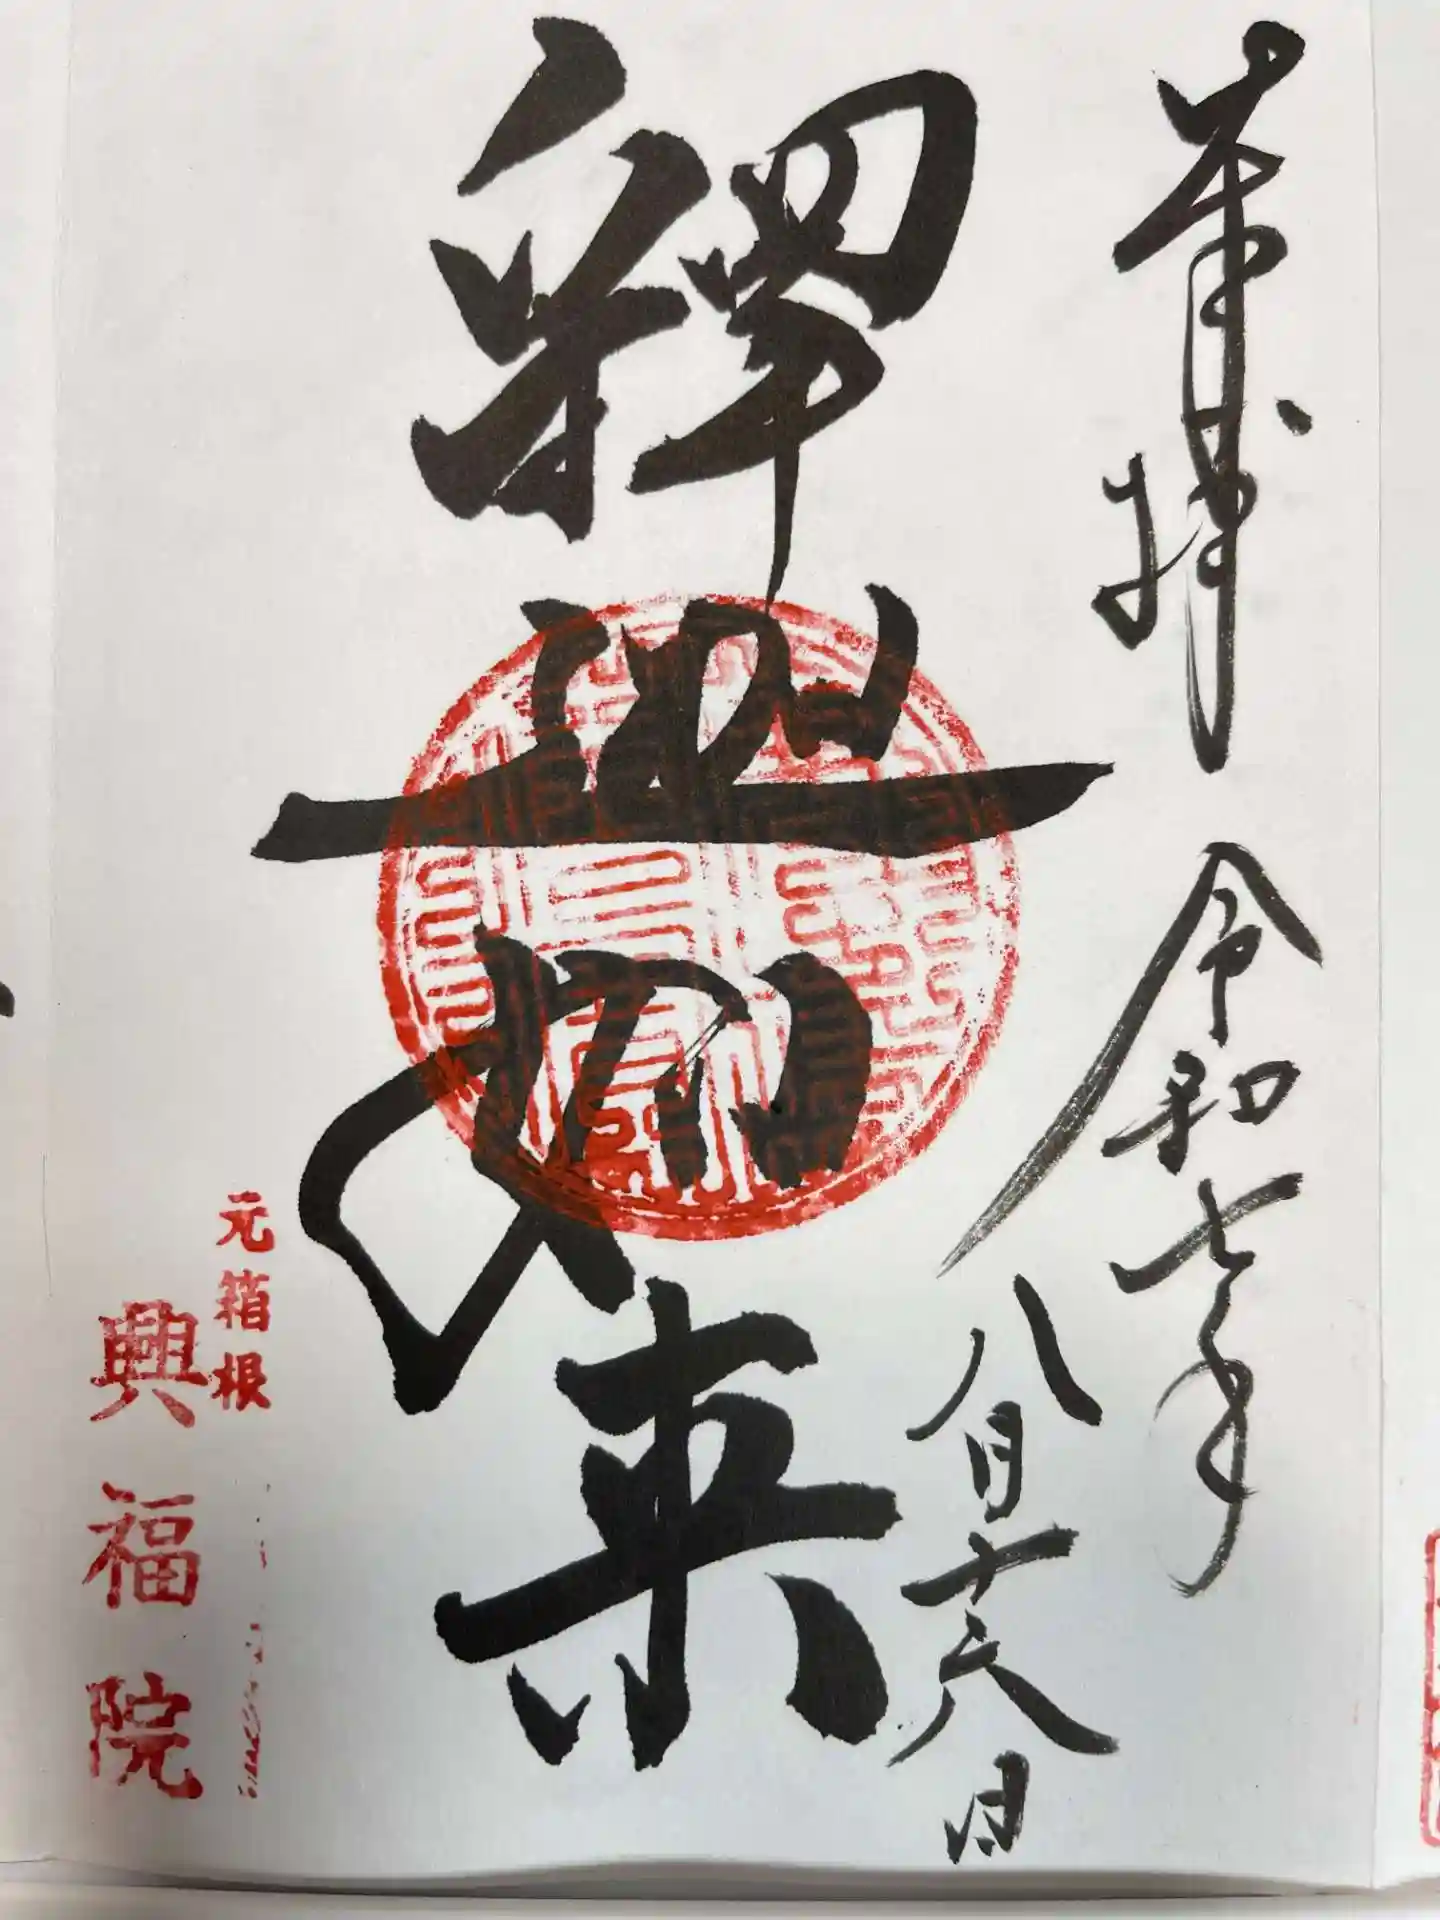 奉拝 令和七年
八月十六日
釋迦如来
元箱根
興福院